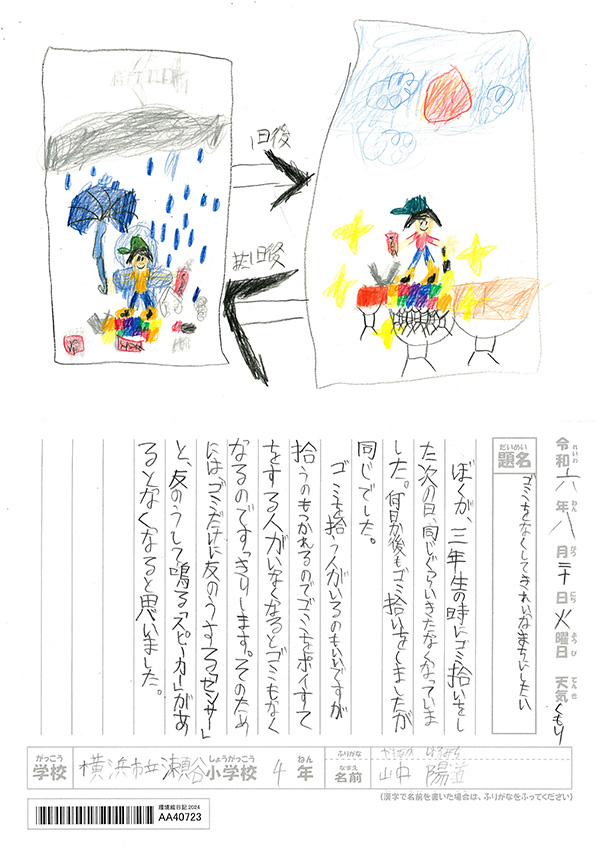 1日後
令和六年八月二十日火曜日 天気 くもり
れいわ ねん がつ にち ようび てんき
だいめい
題名 ゴミをなくしてきれいなまちにしたい
ぼくが、三年生の時にゴミ拾いをし
た次の日、同じぐらいきたなくなっていま
した。何日か後もゴミ拾いをしましたが
同じでした。
ゴミを拾う人がいるのもいいですが
拾うのもつかれるのでゴミをポイすて
をする人がいなくなるとゴミもなく
なるのですっきりします。そのため
にはゴミだけに友のうする「センサー」
と、友のうして鳴る「スピーカー」があ
るとなくなると思いました。
がっこう しょうがっこう ねん ふりがな
学校 横浜市立瀬谷小学校 4年 なまえ 名前 山中 陽道
(漢字で名前を書いた場合は、ふりがなをふってください)
環境絵日記2024
AA40723